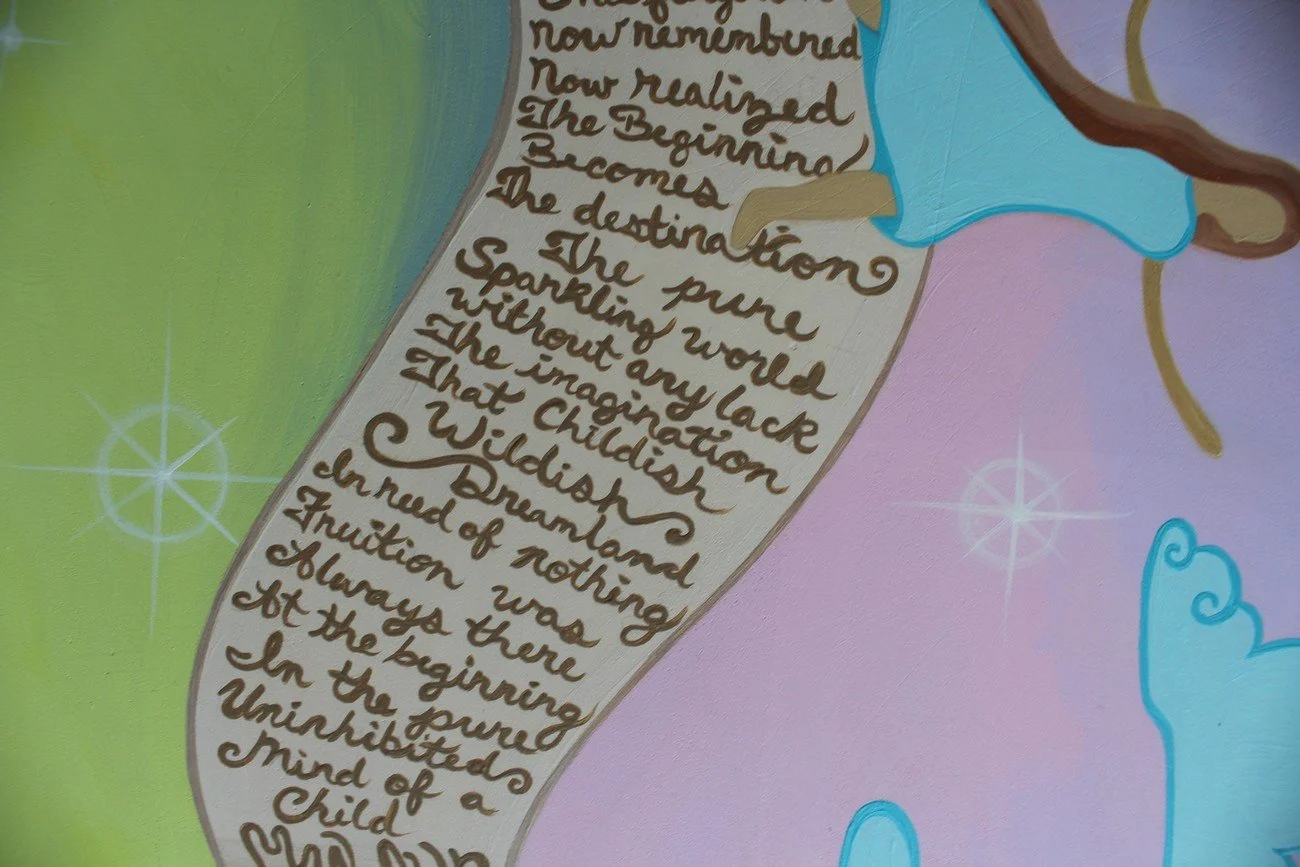 now remembered
Now realized
The Beginning
Becomes
The destination
The pure
Sparkling world
without any lack
The imagination
That Childish
Wildish
Dreamland
In need of nothing
Fruition was
Always there
At the beginning
In the pure
Uninhibited
Mind of a
Child